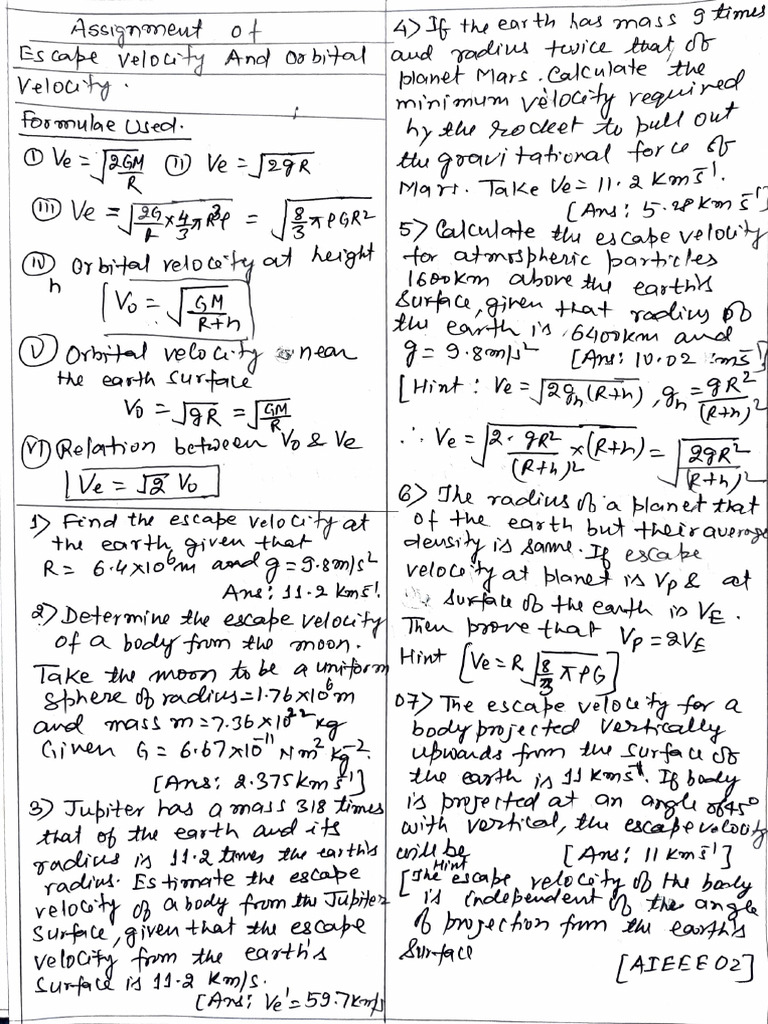 Assignment of
Escape velocity And Orbital
Velocity.
Formulae Used.
(I) Ve = √(2GM/R) (II) Ve = √2gR
(III) Ve = √(2G/R × 4/3 πR³ρ) = √(8/3 πρGR²)
(IV) Orbital velocity at height
h
Vo = √(GM/(R+h))
(V) Orbital velocity near
the earth surface
Vo = √gR = √(GM/R)
(VI) Relation between Vo & Ve
Ve = √2 Vo
1) Find the escape velocity at
the earth, given that
R = 6.4×10⁶m and g = 9.8m/s²
Ans: 11.2 Kms⁻¹.
2) Determine the escape velocity
of a body from the moon.
Take the moon to be a uniform
sphere of radius = 1.76×10⁶m
and mass m = 7.36×10²² kg
Given G = 6.67×10⁻¹¹ Nm² kg⁻².
[Ans: 2.375 Kms⁻¹]
3) Jupiter has a mass 318 times
that of the earth and its
radius is 11.2 times the earth's
radius. Estimate the escape
velocity of a body from the Jupiter
Surface, given that the escape
velocity from the earth's
surface is 11.2 Km/s.
[Ans: Ve' = 59.7 Km/s
4) If the earth has mass 9 times
and radius twice that of
planet Mars. Calculate the
minimum velocity required
by the rocket to pull out
the gravitational force of
Mars. Take Ve = 11.2 Kms⁻¹.
[Ans: 5.28 Kms⁻¹]
5) Calculate the escape velocity
for atmospheric particles
1600Km above the earth's
Surface, given that radius of
the earth is 6400Km and
g = 9.8m/s² [Ans: 10.02 ms⁻¹]
[Hint: Ve = √2gh(R+h), gh = gR²/(R+h)²
∴ Ve = √(2·gR²/(R+h)² ×(R+h)) = √(2gR²/(R+h)²)
6) The radius of a planet that
of the earth but their average
density is same. If escape
velocity at planet is Vp & at
surface of the earth is VE.
Then prove that Vp = 2VE
Hint [Ve = R √(8/3 πρG)]
07) The escape velocity for a
body projected vertically
upwards from the surface of
the earth is 11 Kms⁻¹. If body
is projected at an angle of 45°
with vertical, the escape velocity
will be [Ans: 11 Kms⁻¹]
Hint
[The escape velocity of the body
is independent of the angle
of projection from the earth's
Surface
[AIEEE 02]